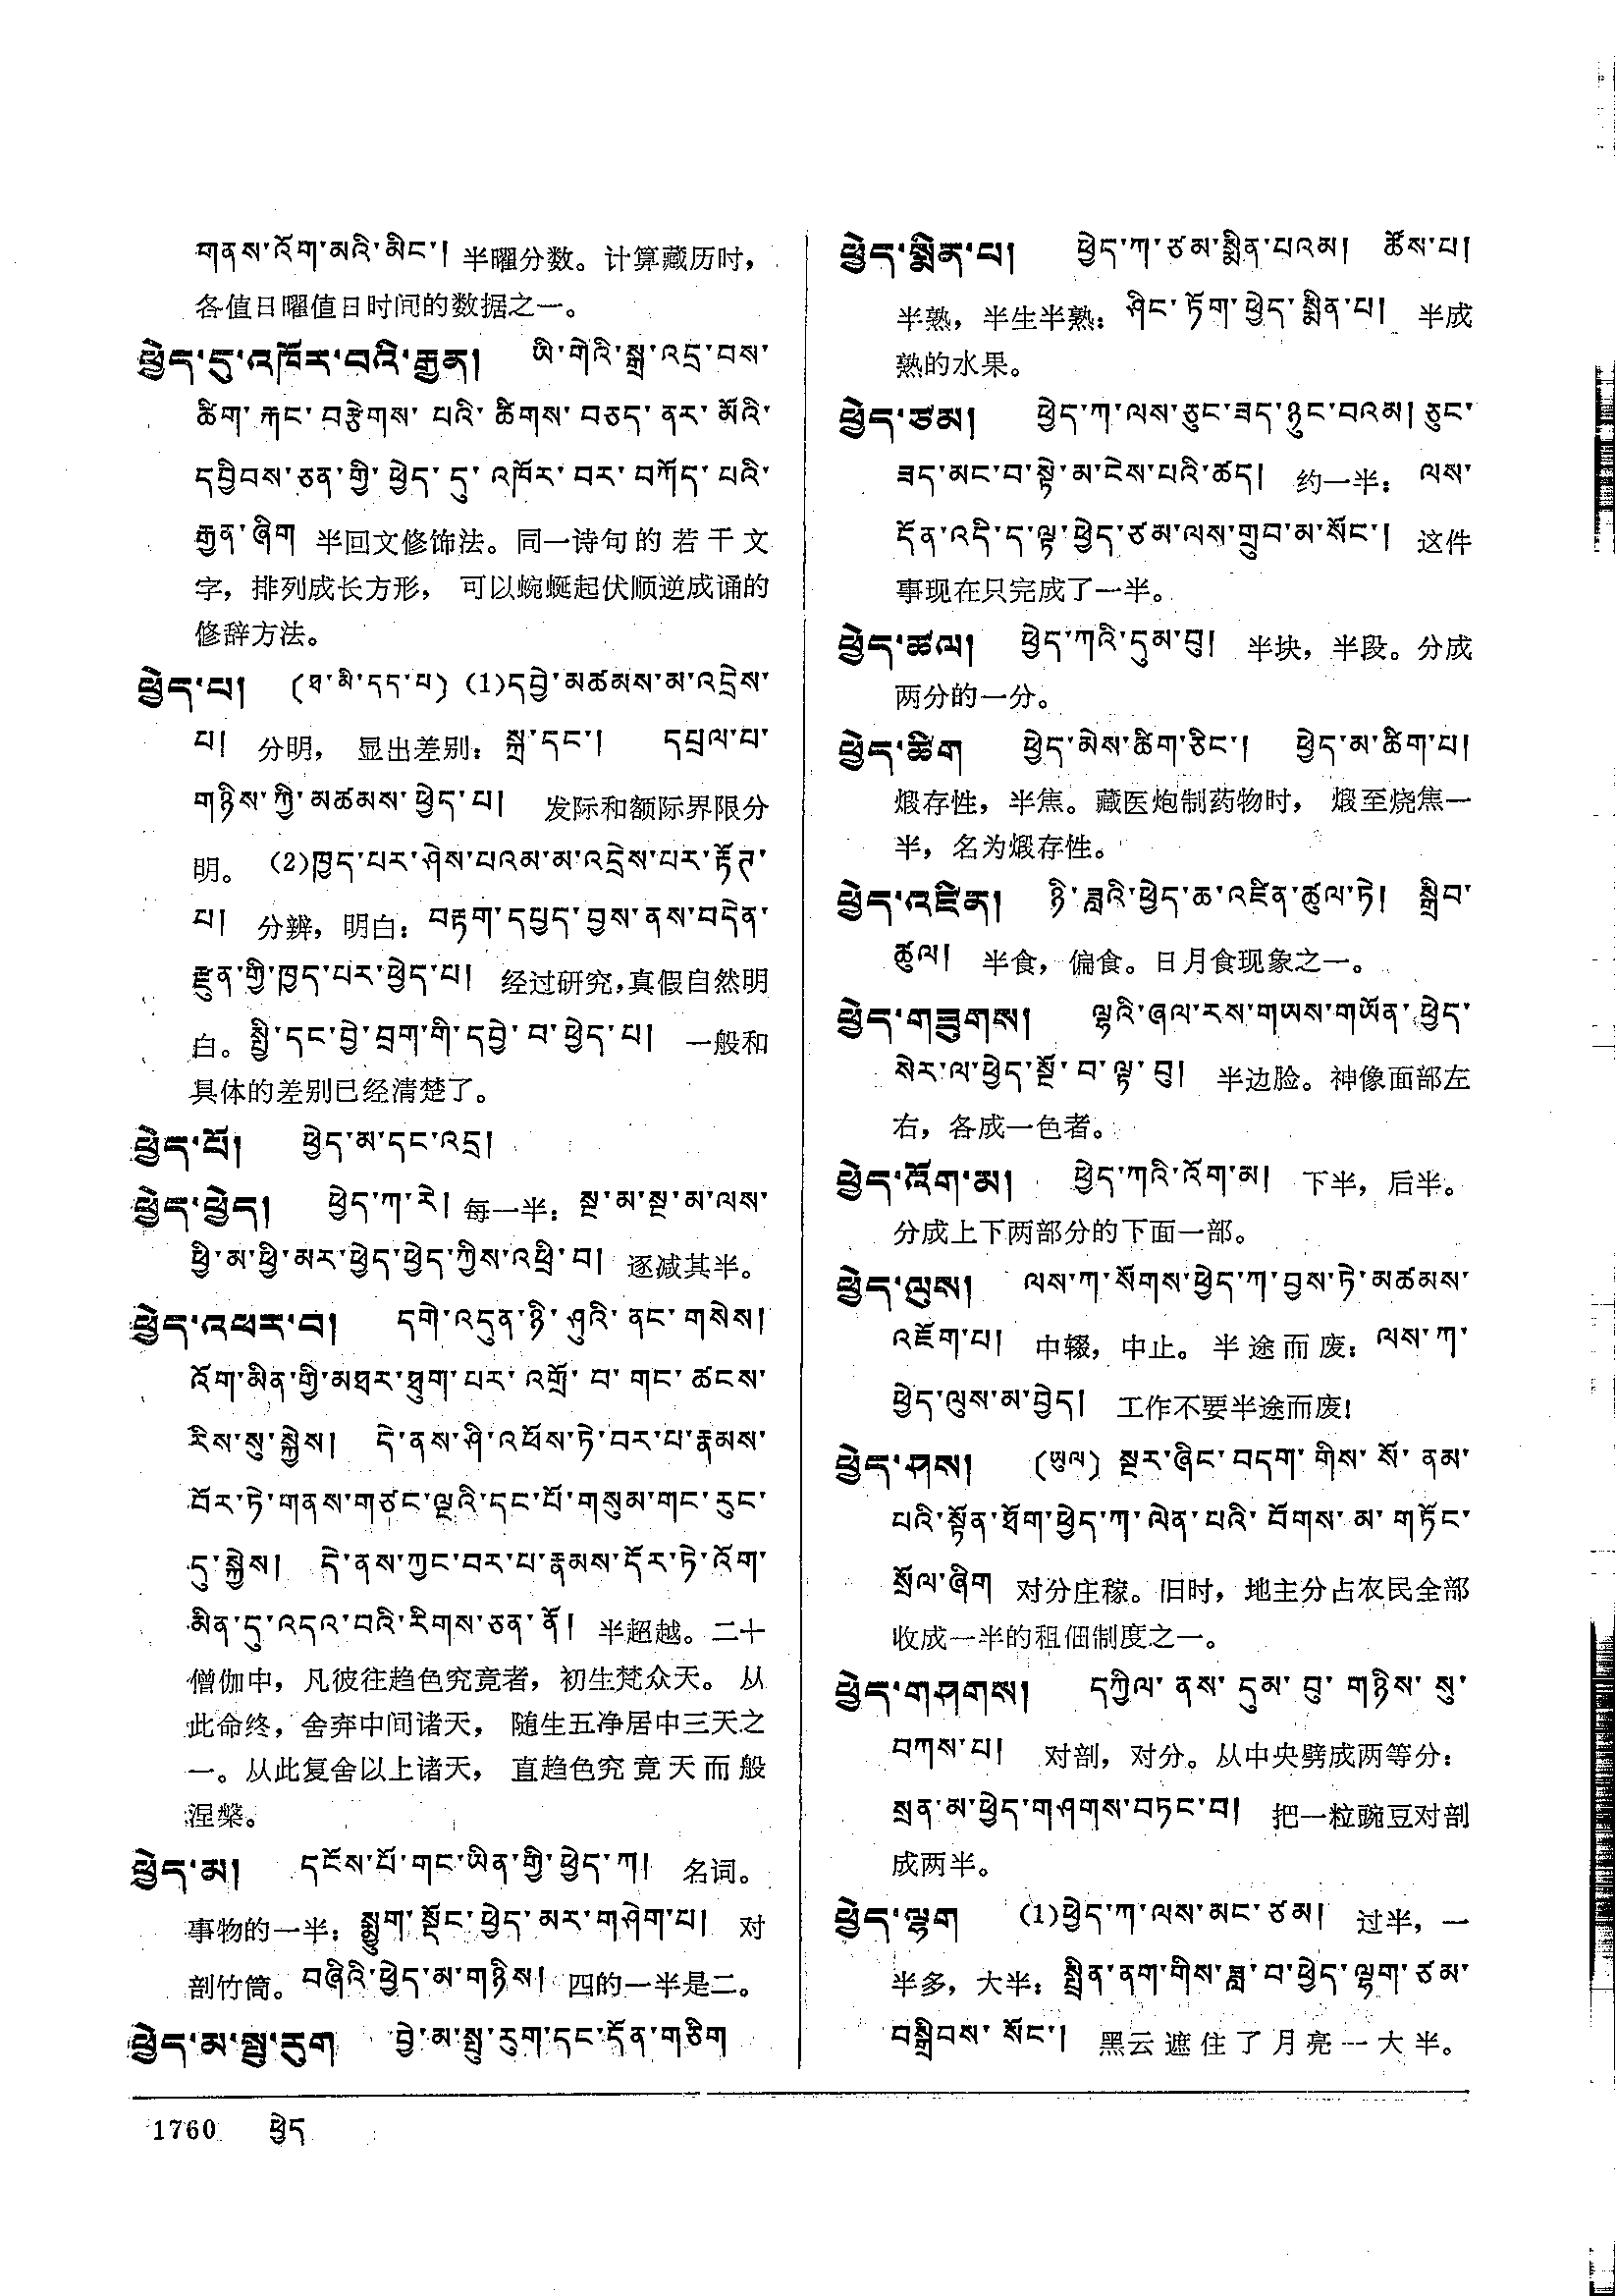 གནས་འོག་མའི་མིང་། 半曜分数。计算藏历时，
各值日曜值日时间的数据之一。
ཕྱེད་དུ་འཁོར་བའི་རྒྱན། ཡི་གེའི་སྒྲ་འདྲ་བས་
ཚིག་རྐང་བརྩེགས་པའི་ཚིགས་བཅད་ནར་མོའི་
དབྱིབས་ཅན་གྱི་ཕྱེད་དུ་འཁོར་བར་བཀོད་པའི་
རྒྱན་ཞིག 半回文修饰法。同一诗句的若干文
字，排列成长方形， 可以蜿蜒起伏顺逆成诵的
修辞方法。
ཕྱེད་པ། (ཐ་མི་དད་པ) (1)དབྱེ་མཚམས་མ་འདྲེས་
པ། 分明， 显出差别：སྐྲ་དང་། དཔྲལ་པ་
གཉིས་ཀྱི་མཚམས་ཕྱེད་པ། 发际和额际界限分
明。 (2)ཁྱད་པར་ཤེས་པའམ་མ་འདྲེས་པར་རྟོཊ་
པ། 分辨，明白：བརྟག་དཔྱད་བྱས་ནས་བདེན་
རྫུན་གྱི་ཁྱད་པར་ཕྱེད་པ། 经过研究，真假自然明
白。སྤྱི་དང་བྱེ་བྲག་གི་དབྱེ་བ་ཕྱེད་པ། 一般和
具体的差别已经清楚了。
ཕྱེད་པོ། ཕྱེད་མ་དང་འདྲ།
ཕྱེད་ཕྱེད། ཕྱེད་ཀ་རེ། 每一半：སྔ་མ་སྔ་མ་ལས་
ཕྱི་མ་ཕྱི་མར་ཕྱེད་ཕྱེད་ཀྱིས་འཕྲི་བ། 逐减其半。
ཕྱེད་འཕར་བ། དགེ་འདུན་ཉི་ཤུའི་ནང་གསེས།
འོག་མིན་གྱི་མཐར་ཐུག་པར་འགྲོ་བ་གང་ཚངས་
རིས་སུ་སྐྱེས། དེ་ནས་ཤི་འཕོས་ཏེ་བར་པ་རྣམས་
བོར་ཏེ་གནས་གཙང་ལྔའི་དང་པོ་གསུམ་གང་རུང་
དུ་སྐྱེས། དེ་ནས་ཀྱང་བར་པ་རྣམས་དོར་ཏེ་འོག་
མིན་དུ་འདའ་བའི་རིགས་ཅན་ནོ། 半超越。二十
僧伽中，凡彼往趋色究竟者，初生梵众天。 从
此命终，舍弃中间诸天， 随生五净居中三天之
一。从此复舍以上诸天， 直趋色究竟天而般
涅槃。
ཕྱེད་མ། དངོས་པོ་གང་ཡིན་གྱི་ཕྱེད་ཀ། 名词。
事物的一半：སྨྱུག་སྡོང་ཕྱེད་མར་གཤེག་པ། 对
剖竹筒。བཞིའི་ཕྱེད་མ་གཉིས། 四的一半是二。
ཕྱེད་མ་སྤྲུ་རུག བྱེ་མ་སྤྲུ་རུག་དང་དོན་གཅིག
ཕྱེད་སྨིན་པ། ཕྱེད་ཀ་ཙམ་སྨིན་པའམ། ཚོས་པ།
半熟，半生半熟：ཤིང་ཏོག་ཕྱེད་སྨིན་པ། 半成
熟的水果。
ཕྱེད་ཙམ། ཕྱེད་ཀ་ལས་ཅུང་ཟད་ཉུང་བའམ། ཅུང་
ཟད་མང་བ་སྟེ་མ་ངེས་པའི་ཚད། 约一半：ལས་
དོན་འདི་ད་ལྟ་ཕྱེད་ཙམ་ལས་གྲུབ་མ་སོང་། 这件
事现在只完成了一半。
ཕྱེད་ཚལ། ཕྱེད་ཀའི་དུམ་བུ། 半块，半段。分成
两分的一分。
ཕྱེད་ཚིག ཕྱེད་མེས་ཚིག་ཅིང་། ཕྱེད་མ་ཚིག་པ།
煅存性，半焦。藏医炮制药物时， 煅至烧焦一
半，名为煅存性。
ཕྱེད་འཛིན། ཉི་ཟླའི་ཕྱེད་ཆ་འཛིན་ཚུལ་ཏེ། སྒྲིབ་
ཚུལ། 半食，偏食。日月食现象之一。
ཕྱེད་གཟུགས། ལྷའི་ཞལ་རས་གཡས་གཡོན་ཕྱེད་
སེར་ལ་ཕྱེད་སྔོ་བ་ལྟ་བུ། 半边脸。神像面部左
右，各成一色者。
ཕྱེད་འོག་མ། ཕྱེད་ཀའི་འོག་མ། 下半，后半。
分成上下两部分的下面一部。
ཕྱེད་ལུས། ལས་ཀ་སོགས་ཕྱེད་ཀ་བྱས་ཏེ་མཚམས་
འཇོག་པ། 中辍，中止。半途而废：ལས་ཀ་
ཕྱེད་ལུས་མ་བྱེད། 工作不要半途而废！
ཕྱེད་ཤས། (ཡུལ) སྔར་ཞིང་བདག་གིས་སོ་ནམ་
པའི་སྟོན་ཐོག་ཕྱེད་ཀ་ལེན་པའི་བོགས་མ་གཏོང་
སྲོལ་ཞིག 对分庄稼。旧时，地主分占农民全部
收成一半的租佃制度之一。
ཕྱེད་གཤགས། དཀྱིལ་ནས་དུམ་བུ་གཉིས་སུ་
བཀས་པ། 对剖，对分。从中央劈成两等分：
སྲན་མ་ཕྱེད་གཤགས་བཏང་བ། 把一粒豌豆对剖
成两半。
ཕྱེད་ལྷག (1)ཕྱེད་ཀ་ལས་མང་ཙམ། 过半，一
半多，大半：སྤྲིན་ནག་གིས་ཟླ་བ་ཕྱེད་ལྷག་ཙམ་
བསྒྲིབས་སོང་། 黑云遮住了月亮一大半。
1760 ཕྱེད